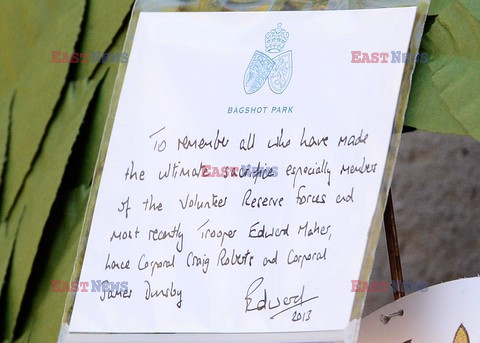 EAST NEWS
EAST NEWS
BAGSHOT PARK
To remember all who have made
the ultimate sacrifice especially members
of the Volunteer Reserve Forces and
most recently Trooper Edward Maher,
Lance Corporal Craig Roberts and Corporal
James Dunsby
Edward
2013
EAST NEWS
EAST NEWS
EAST NEWS